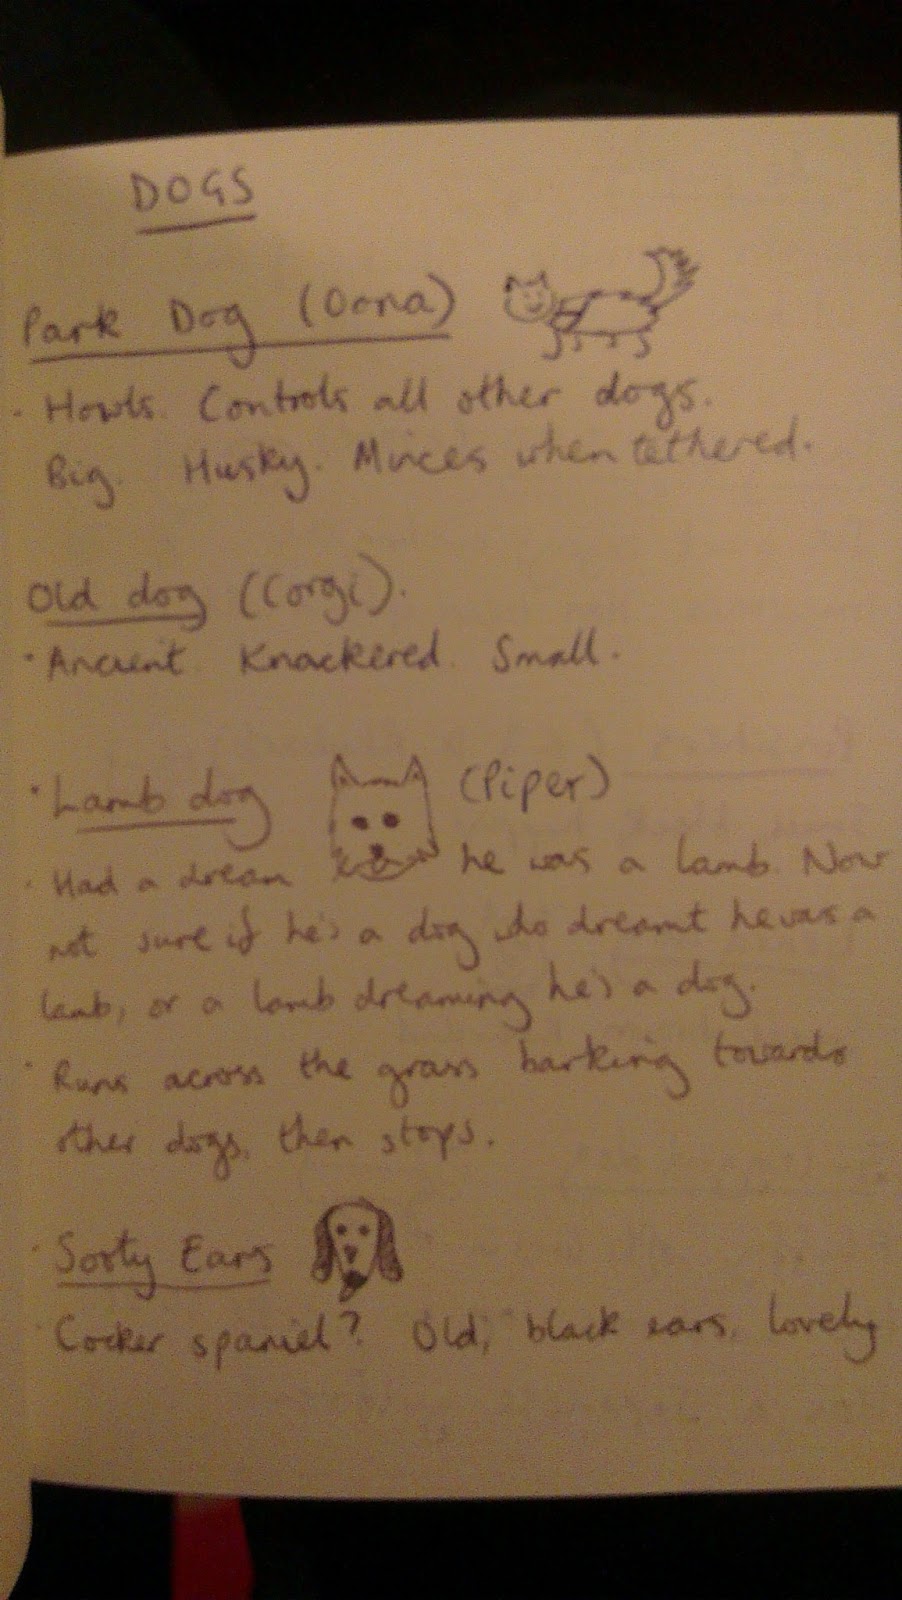 DOGS
Park Dog (Oona)
· Howls. Controls all other dogs.
Big. Husky. Minces when tethered.
Old dog (Corgi).
· Ancient. Knackered. Small.
· Lamb dog (Piper)
· Had a dream he was a lamb. Now
not sure if he's a dog who dreamt he was a
lamb, or a lamb dreaming he's a dog.
· Runs across the grass barking towards
other dogs, then stops.
· Sooty Ears
· Cocker spaniel? Old, black ears, lovely